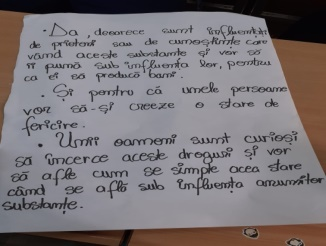 • Da, deoarece sunt influențați
de prieteni sau de cunoștințe care
vând aceste substanțe și vor să
îi pună sub influența lor, pentru
ca ei să producă bani.
• Și pentru că unele persoane
vor să-și creeze o stare de
fericire.
• Unii oameni sunt curioși
să încerce aceste droguri și vor
să afle cum se simte acea stare
când se află sub influența anumitor
substanțe.